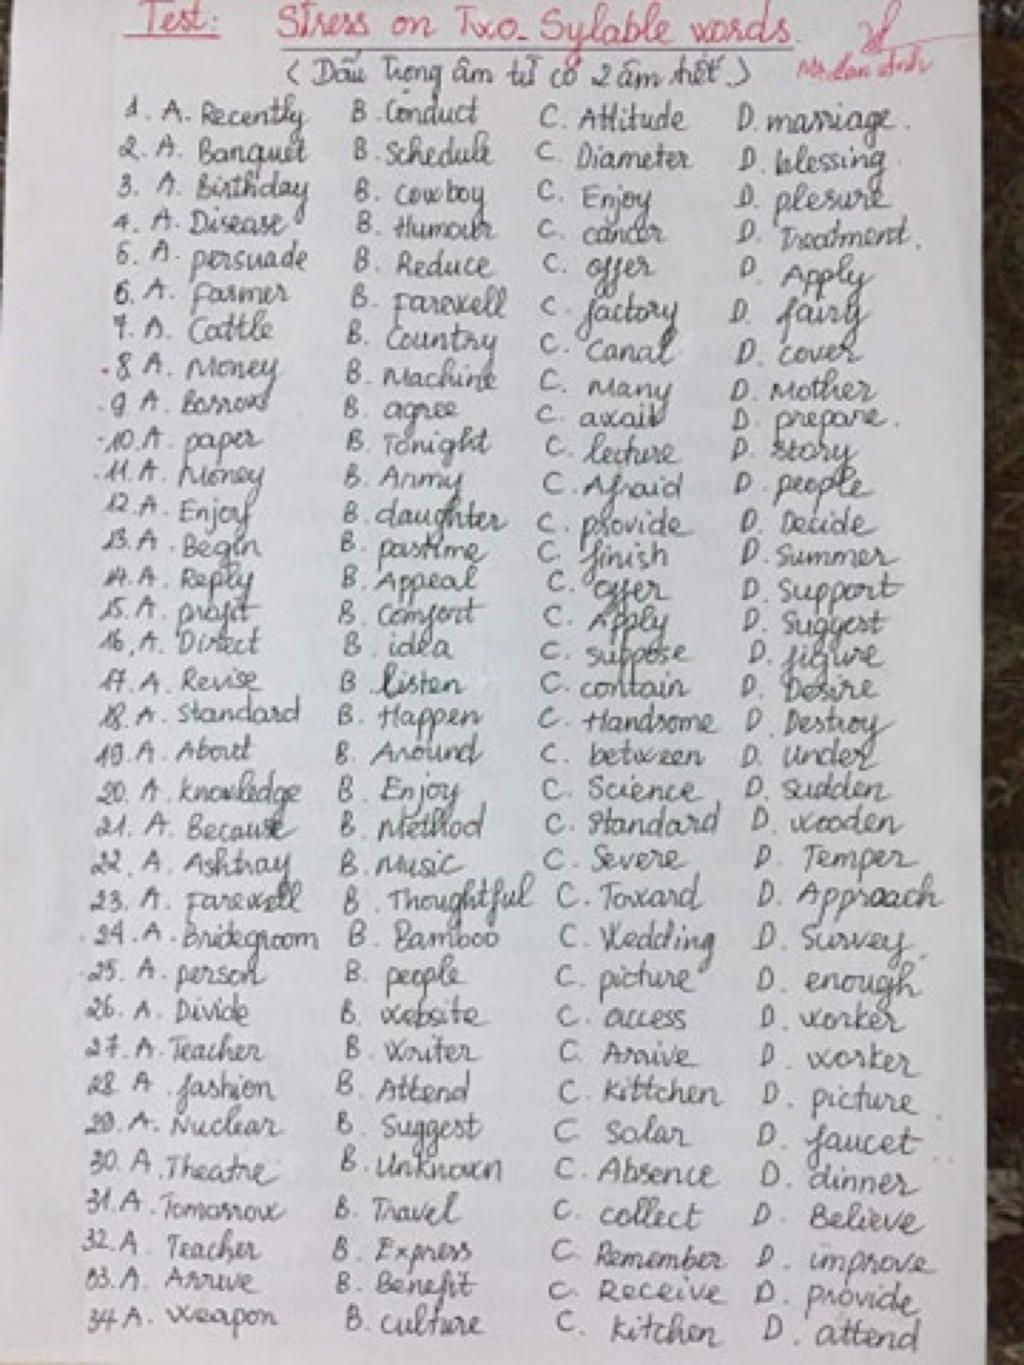 Test: Stress on Two_ Sylable words.
(Dấu trọng âm từ có 2 âm tiết.)
1. A. Recently B. Conduct C. Attitude D. marriage.
2. A. Banquet B. Schedule C. Diameter D. blessing.
3. A. Birthday B. Cowboy C. Enjoy D. plesure
4. A. Disease B. Humour C. cancer D. Treatment.
5. A. persuade B. Reduce C. offer D. Apply
6. A. Farmer B. Farewell C. factory D. fairy
7. A. Cattle B. Country C. Canal D. cover
8 A. Money B. Machine C. Many D. Mother
9 A. Borrow B. agree C. await D. prepare.
10. A. paper B. Tonight C. lecture D. story
11. A. Money B. Army C. Afraid D. people
12. A. Enjoy B. daughter C. provide D. Decide
13. A. Begin B. pastime C. finish D. Summer
14. A. Reply B. Appeal C. offer D. Support
15. A. profit B. Comfort C. Apply D. Suggest
16, A. Direct B. idea C. suppose D. figure
17. A. Revise B. listen C. contain D. Desire
18. A. Standard B. Happen C. Handsome D. Destroy
19. A. About B. Around C. between D. Under
20. A. knowledge B. Enjoy C. Science D. Sudden
21. A. Because B. Method C. Standard D. wooden
22. A. Ashtray B. Music C. Severe D. Temper
23. A. Farewell B. Thoughtful C. Toward D. Approach
24. A. Bridegroom B. Bamboo C. Wedding D. Survey.
25. A. person B. people C. picture D. enough
26. A. Divide B. website C. access D. worker
27. A. Teacher B. Writer C. Arrive D. worker
28 A. fashion B. Attend C. Kittchen D. picture
29. A. Nuclear B. Suggest C. Solar D. faucet
30. A. Theatre B. Unknown C. Absence D. dinner
31. A. Tomorrow B. Travel C. collect D. Believe
32. A. Teacher B. Express C. Remember D. improve
33. A. Arrive B. Benefit C. Receive D. provide
34 A. Weapon B. culture C. kitchen D. attend